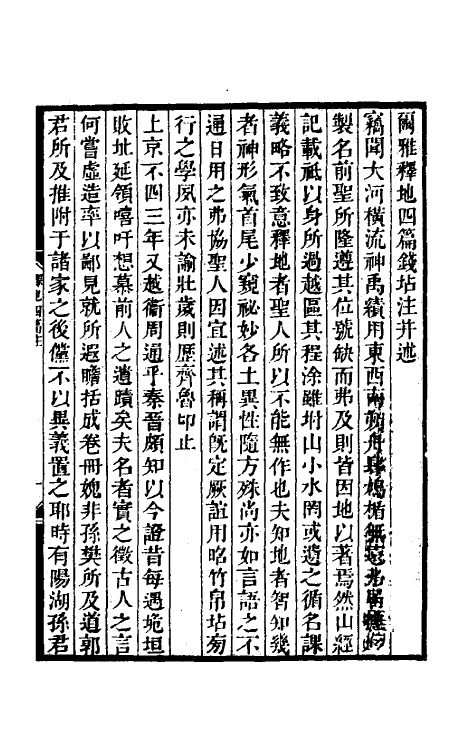 爾雅釋地四篇錢坫注幷述
竊聞大河橫流神禹績用東西
製名前聖所隆遵其位號缺而弗及則皆因地以著焉然山經
記載祗以身所過越區其程涂雖坿山小水罔或遺之循名課
義略不致意釋地者聖人所以不能無作也夫知地者智知幾
者神形氣首尾少窺祕妙各土異性隨方殊尚亦如言語之不
通日用之弗協聖人因宜述其稱謂旣定厥誼用昭竹帛坫匆
行之學夙亦未諭壯歲則歷齊魯印止
上京不四三年又越衞周通乎秦晉頗知以今證昔每遇垝垣
敗址延領嘻吁想幕前人之遺蹟矣夫名者實之徵古人之言
何嘗虛造率以鄙見就所遐瞻括成卷冊媿非孫樊所及道郭
君所及推附于諸家之後儻不以異義置之耶時有陽湖孫君